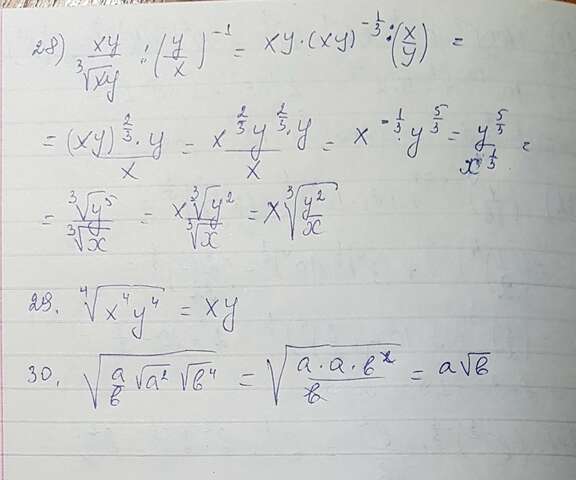 28) xy/∛xy : (y/x)^-1 = xy·(xy)^-1/3 : (x/y) =
= (xy)^2/3 · y / x = x^2/3 y^2/3 · y / x = x^-1/3 · y^5/3 = y^5/3 / x^1/3 =
= ∛y^5 / ∛x = x∛y^2 / ∛x = x∛(y^2/x)
29. ∜(x^4 y^4) = xy
30. √(a/b √a^2 √b^4) = √(a·a·b^2 / b) = a√b